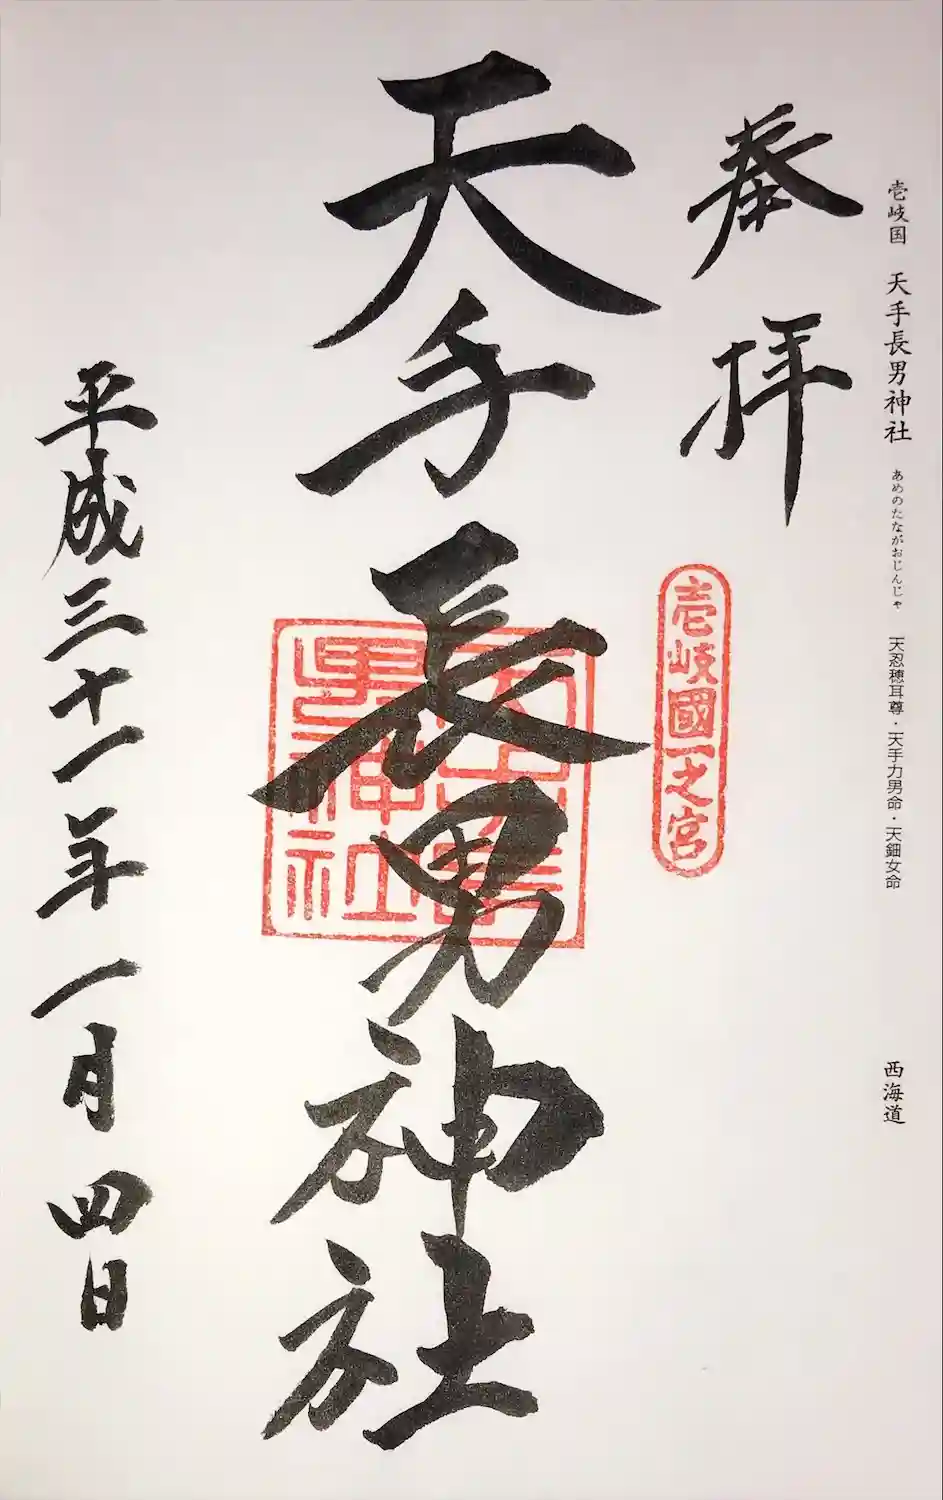 壱岐国 天手長男神社 あめのたながおじんじゃ 天忍穂耳尊・天手力男命・天鈿女命 西海道
奉拝
壱岐國一之宮
天手長男神社
平成三十一年一月四日